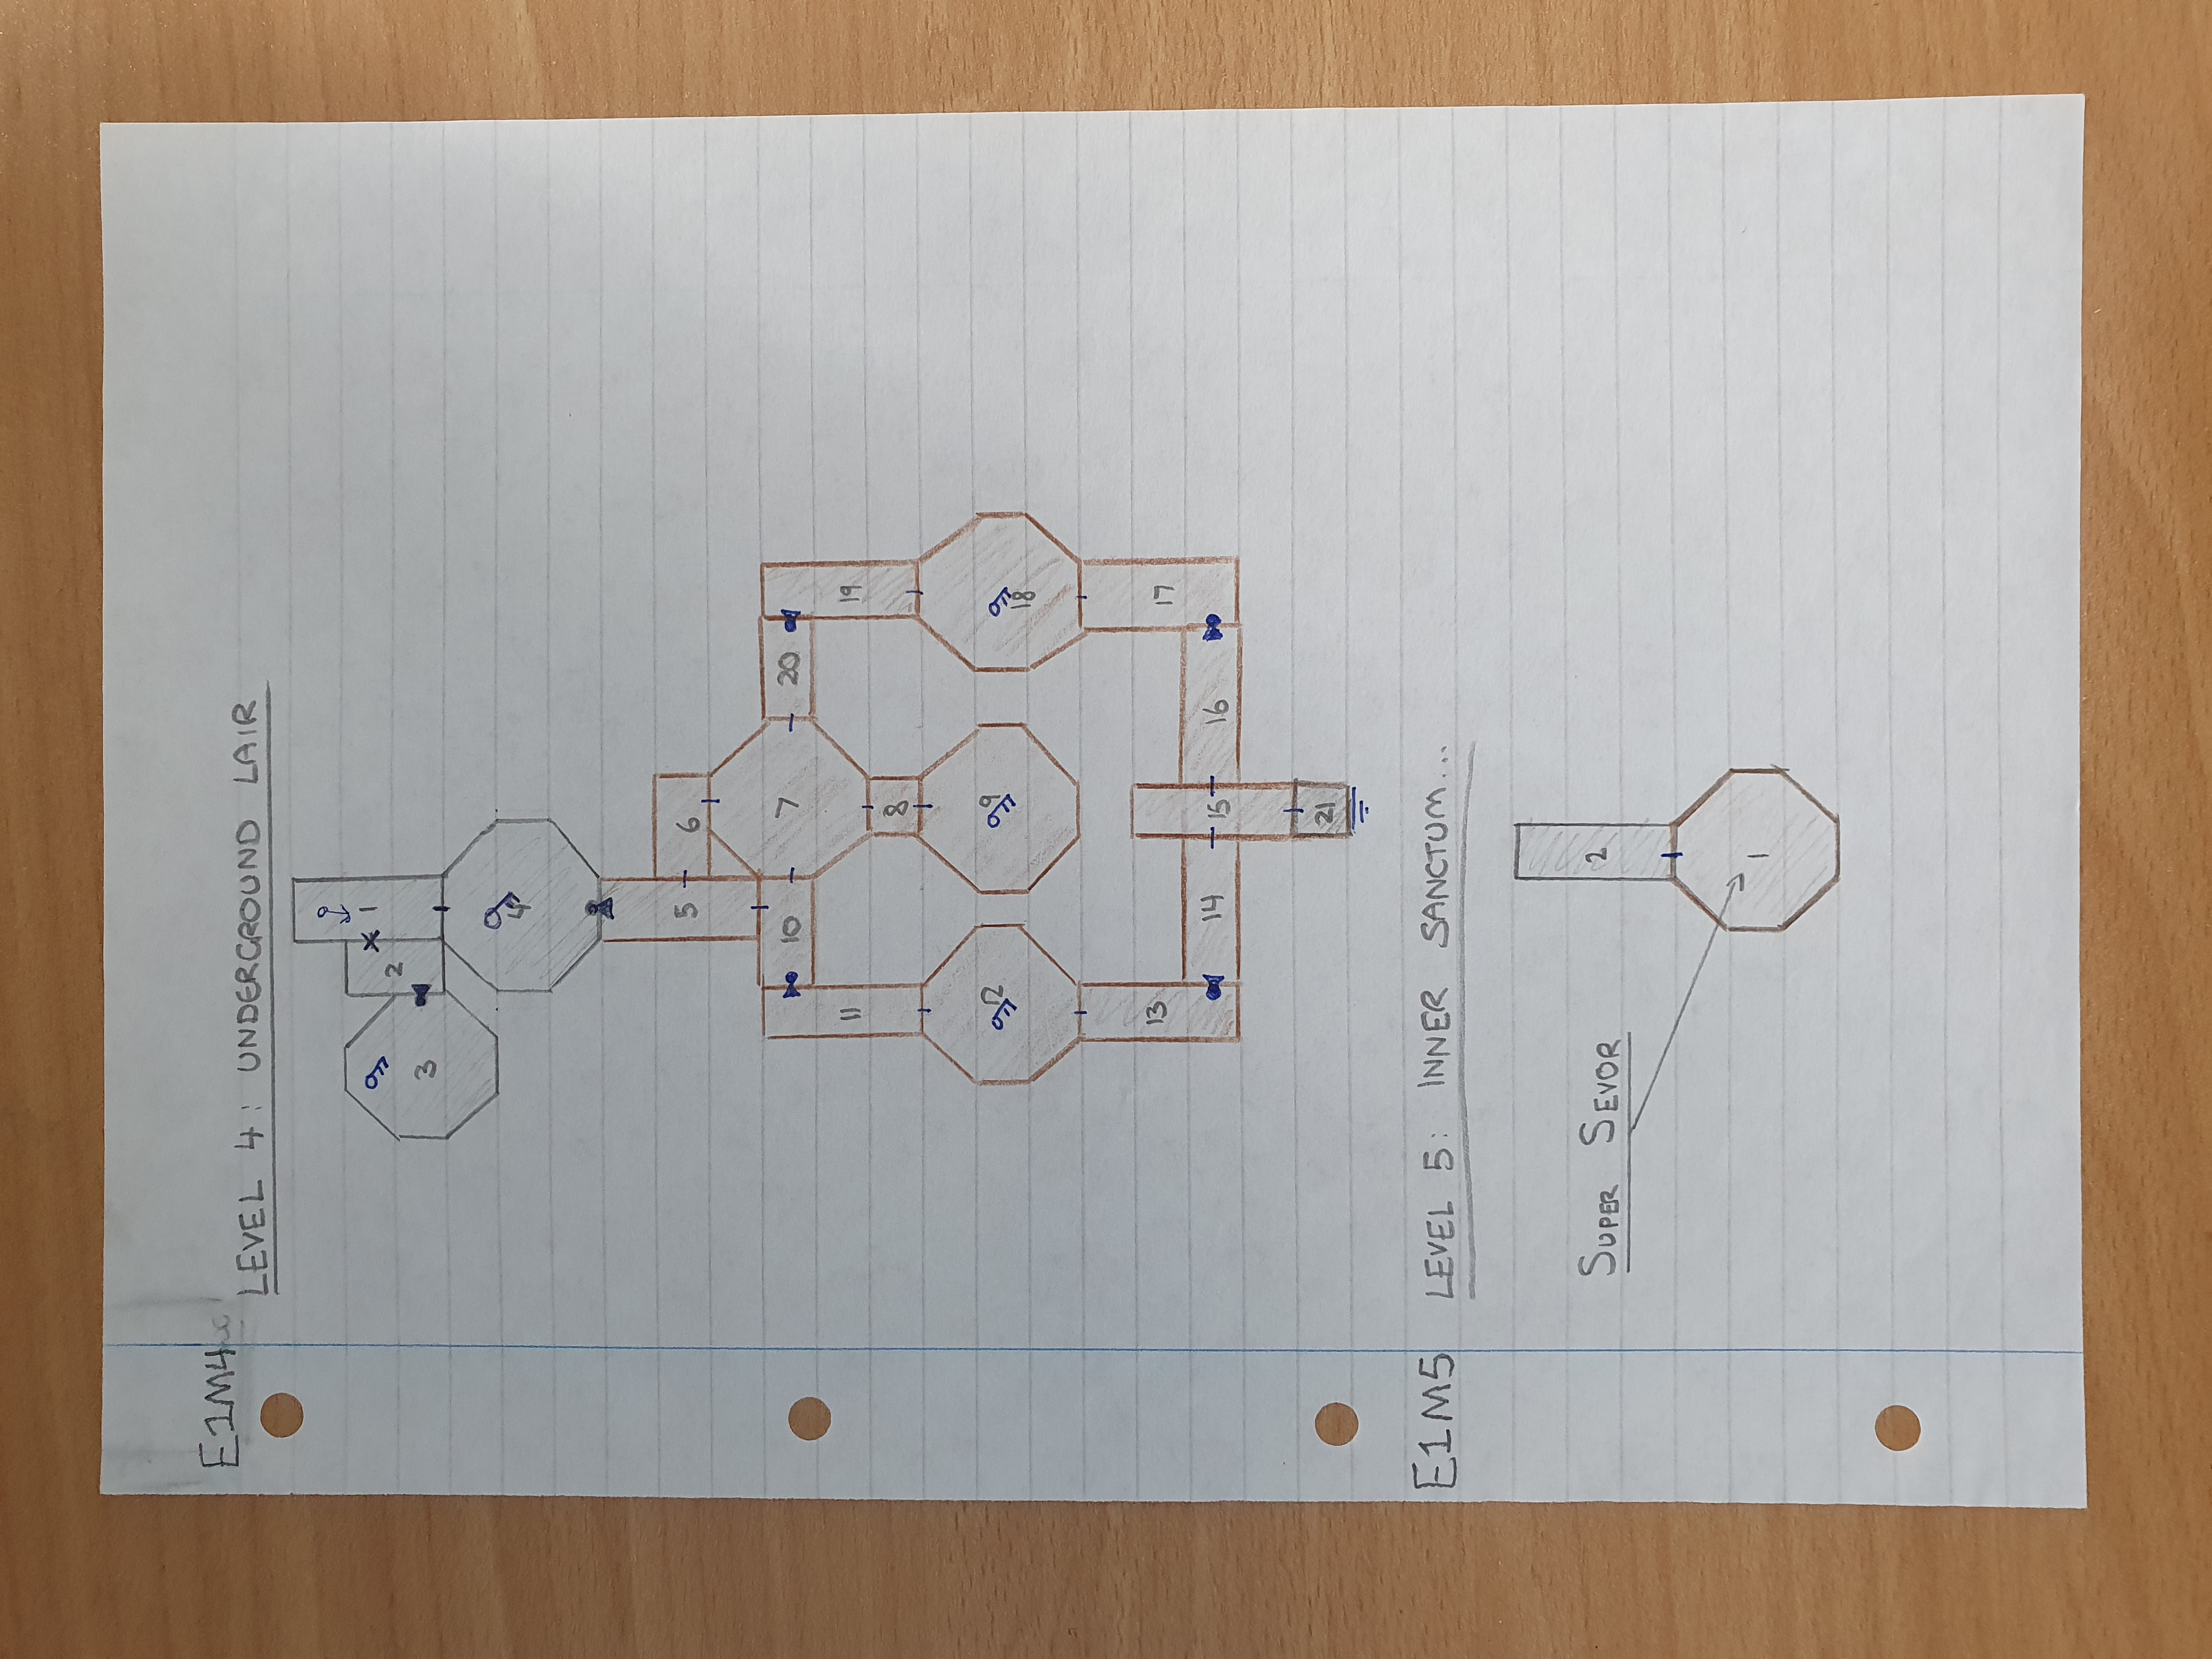 E1M4
LEVEL 4: UNDERGROUND LAIR
1
2
3
4
5
6
7
10
20
11
19
8
12
9
18
13
17
14
15
16
21
E1M5
LEVEL 5: INNER SANCTUM...
2
SUPER SEVOR
1